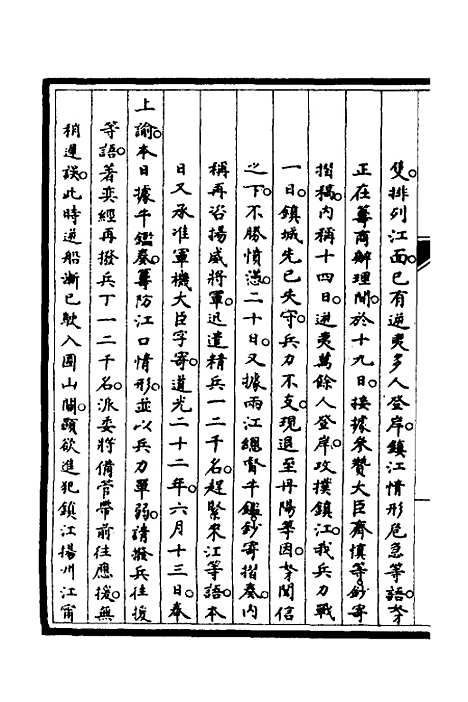 隻排列江面已有逆夷多人登岸鎮江情形危急等語孥
正在籌商辦理間於十九日接據參贊大臣齊慎等鈔寄
摺稿內稱十四日逆夷萬餘人登岸攻撲鎮江我兵力戰
一日鎮城先已失守兵力不支現退至丹陽等因孥聞信
之下不勝憤懣二十日又據兩江總督牛鑑鈔寄摺奏內
稱再咨揚威將軍迅遣精兵一二千名趕緊來江等語本
日又承准軍機大臣字寄道光二十二年六月十三日奉
上諭本日據牛鑑奏籌防江口情形並以兵力單弱請撥兵往援
等語著奕經再撥兵丁一二千名派委將備管帶前往應援無
稍遲誤此時逆船漸已駛入圌山關顯欲進犯鎮江揚州江甯